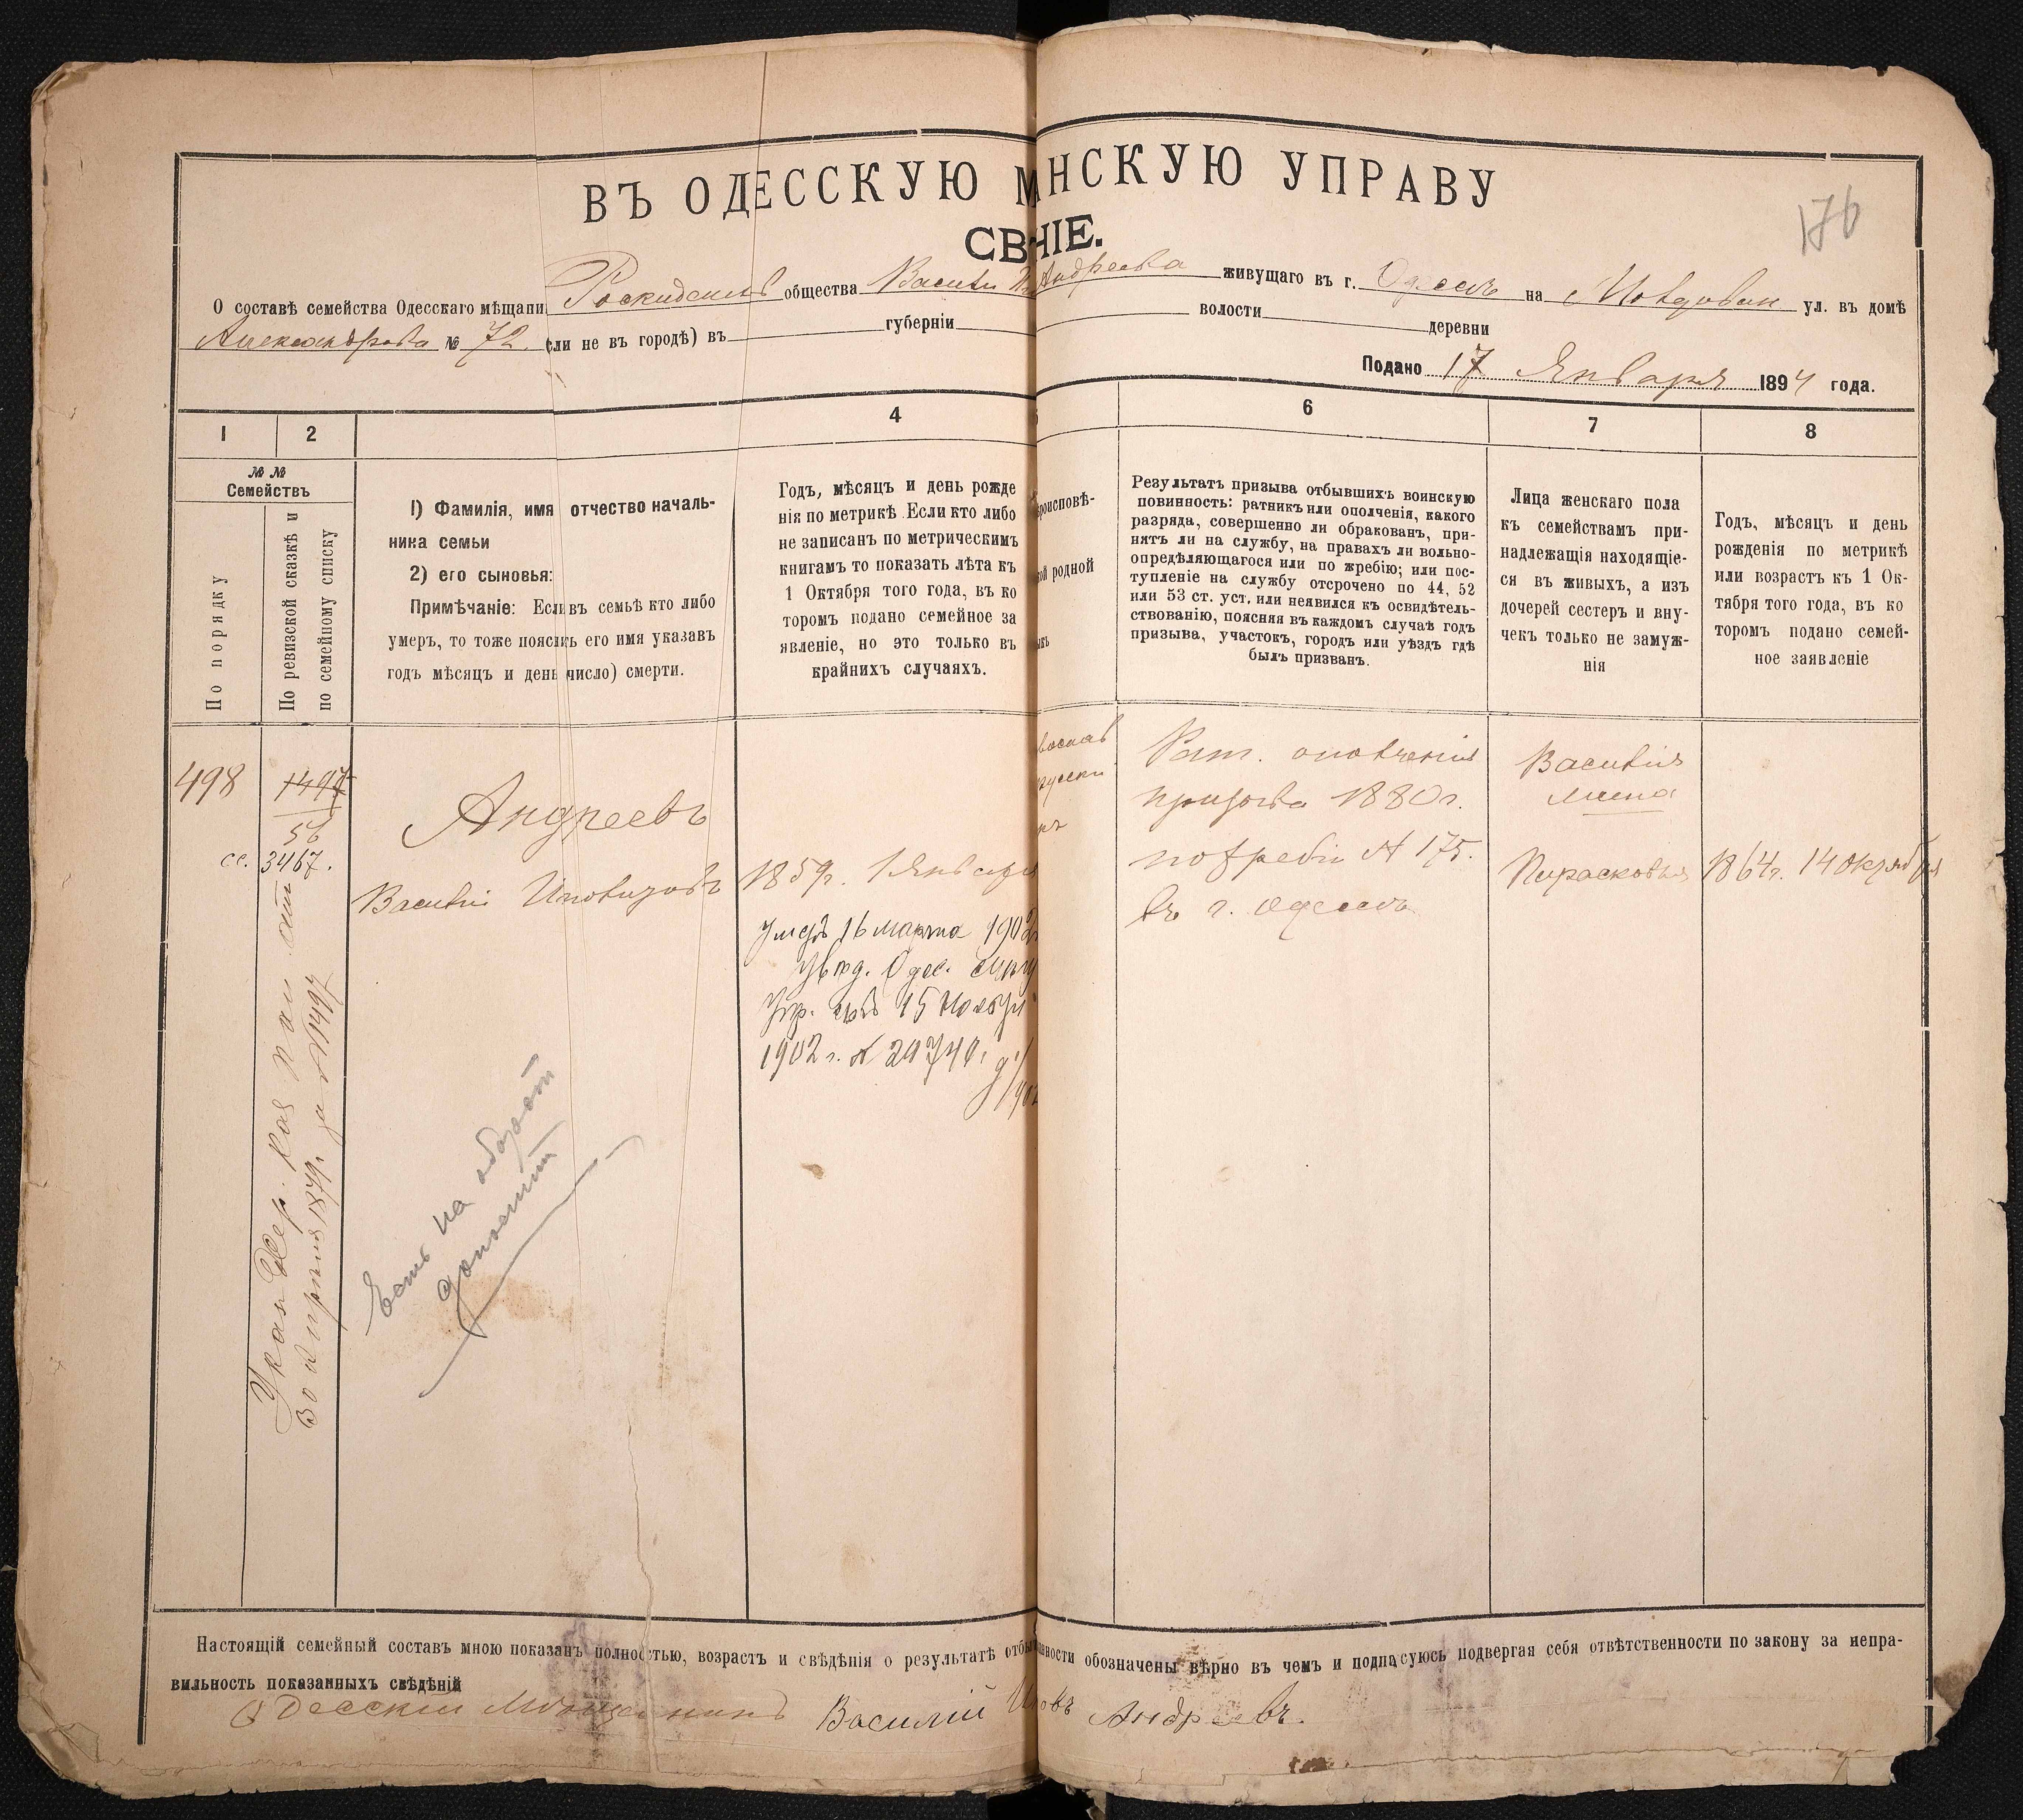 ВЪ ОДЕССКУЮ М НСКУЮ УПРАВУ
176
СВ НІЕ.
О составѣ семейства Одесскаго мѣщани общества Василія Андреева живущаго въ г. Одессѣ на ул. въ домѣ
Александрова № 72 ли не въ городѣ) въ губерніи волости деревни
Подано 17 Января 1894 года.
1 2 4 6 7 8
№ №
Семействъ
По порядку
По ревизской сказкѣ и
по семейному списку
1) Фамилія, имя отчество началь-
ника семьи
2) его сыновья:
Примѣчаніе: Если въ семьѣ кто либо
умеръ, то тоже пояснить его имя указавъ
годъ мѣсяцъ и день число) смерти.
Годъ, мѣсяцъ и день рожде
нія по метрикѣ Если кто либо
не записанъ по метрическимъ
книгамъ то показать лѣта къ
1 Октября того года, въ ко
торомъ подано семейное за
явленіе, но это только въ
крайнихъ случаяхъ.
роисповѣ-
ой родной
Результатъ призыва отбывшихъ воинскую
повинность: ратникъ или ополченія, какого
разряда, совершенно ли обракованъ, при-
нятъ ли на службу, на правахъ ли вольно-
опредѣляющагося или по жребію; или пос-
тупленіе на службу отсрочено по 44, 52
или 53 ст. уст. или неявился къ освидѣтель-
ствованію, поясняя въ каждомъ случаѣ годъ
призыва, участокъ, городъ или уѣздъ гдѣ
былъ призванъ.
Лица женскаго пола
къ семействамъ при-
надлежащія находящіе-
ся въ живыхъ, а изъ
дочерей сестеръ и вну-
чекъ только не замуж-
нія
Годъ, мѣсяцъ и день
рожденія по метрикѣ
или возрастъ къ 1 Ок-
тября того года, въ ко
торомъ подано семей-
ное заявленіе
498
1497
56
сс. 3467.
Указ
за № 1497
Андреевъ
Василій
1859г. 1 Января
Умеръ 16 марта 1902
Увѣд. Одес.
Упр. отъ 15 Ноября
1902 г. №
Есть на оборотѣ
Рат. ополченія
призыва 1880 г.
по жребію № 175.
въ г. Одессѣ
Василія
жена
Парасковія
1864г. 14 октября
Настоящій семейный составъ мною показанъ полностью, возрастъ и свѣдѣнія о результатѣ отбы нности обозначены вѣрно въ чемъ и подписуюсь подвергая себя отвѣтственности по закону за непра-
вильность показанныхъ свѣдѣній
Одесскій Мѣщанинъ Василій Андреевъ.